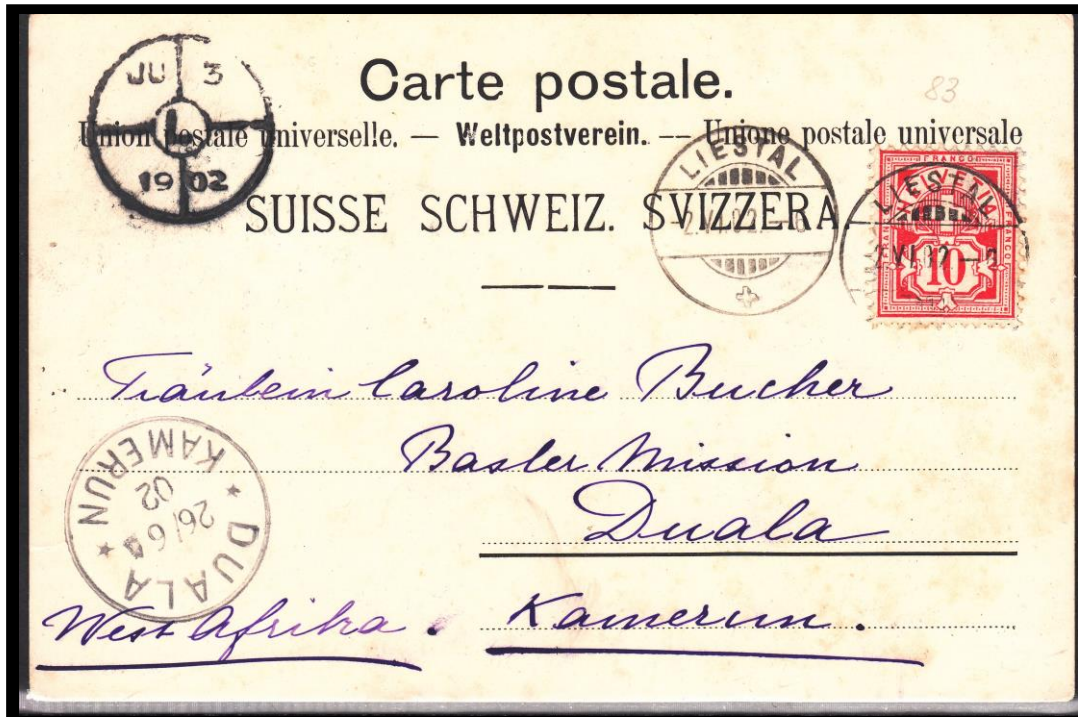 JU 3
L
19 02
Carte postale.
83
Union postale universelle. — Weltpostverein. — Unione postale universale
SUISSE SCHWEIZ. SVIZZERA.
LIESTAL
LIESTAL
2.VI.02.
FRANCO
FRANCO
FRANCO
10
Fräulein Caroline Bucher
Basler Mission
Duala
Kamerun.
West Afrika.
DUALA
KAMERUN
26/6
02